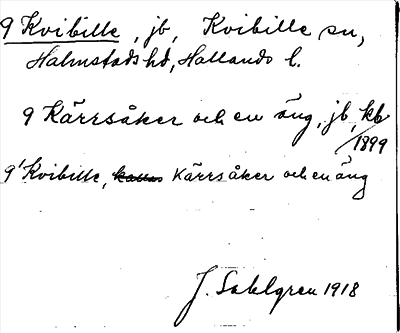 9 Kvibille, jb, Kvibille sn,
Halmstads hd, Hallands l.
9 Kärrsåker och en äng, jb, kb
/1899
9' Kvibille, kallas Kärrsåker och en äng
J. Sahlgren 1918